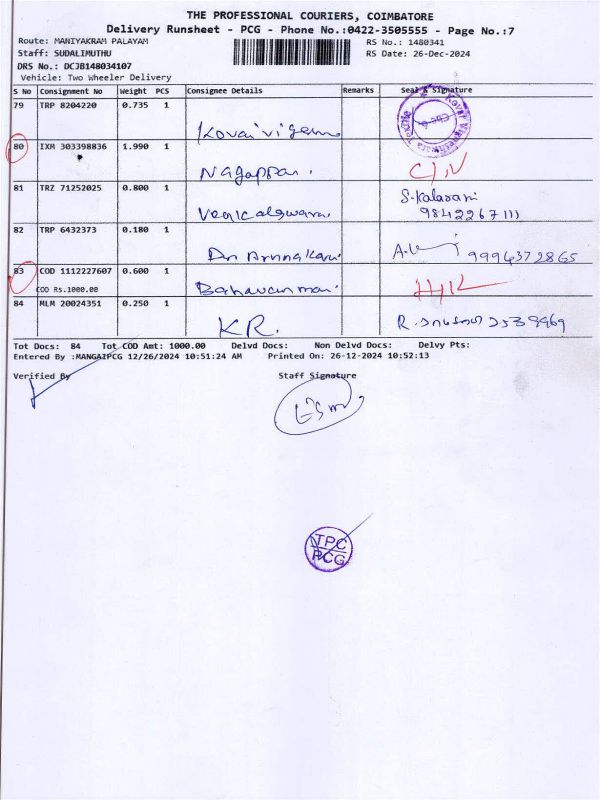 THE PROFESSIONAL COURIERS, COIMBATORE
Delivery Runsheet - PCG - Phone No.:0422-3505555 - Page No.:7
Route: MANIYAKRAM PALAYAM RS No.: 1480341
Staff: SUDALIMUTHU RS Date: 26-Dec-2024
DRS No.: DCJB148034107
Vehicle: Two Wheeler Delivery
S No Consignment No Weight PCS Consignee Details Remarks Seal & Signature
79 TRP 8204220 0.735 1
80 IXM 303398836 1.990 1 Nagappan.
81 TRZ 71252025 0.800 1 S.Kalarani
9842267111
82 TRP 6432373 0.180 1 9994372865
83 COD 1112227607 0.600 1
COD Rs.1000.00
84 MLM 20024351 0.250 1 KR.
Tot Docs: 84 Tot COD Amt: 1000.00 Delvd Docs: Non Delvd Docs: Delvy Pts:
Entered By :MANGAIPCG 12/26/2024 10:51:24 AM Printed On: 26-12-2024 10:52:13
Verified By Staff Signature
TPC
PCG